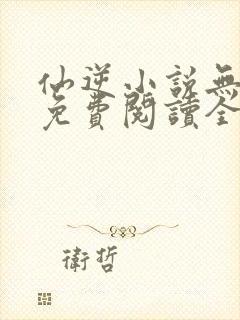 仙逆小說無
免費閱讀全
衛哲